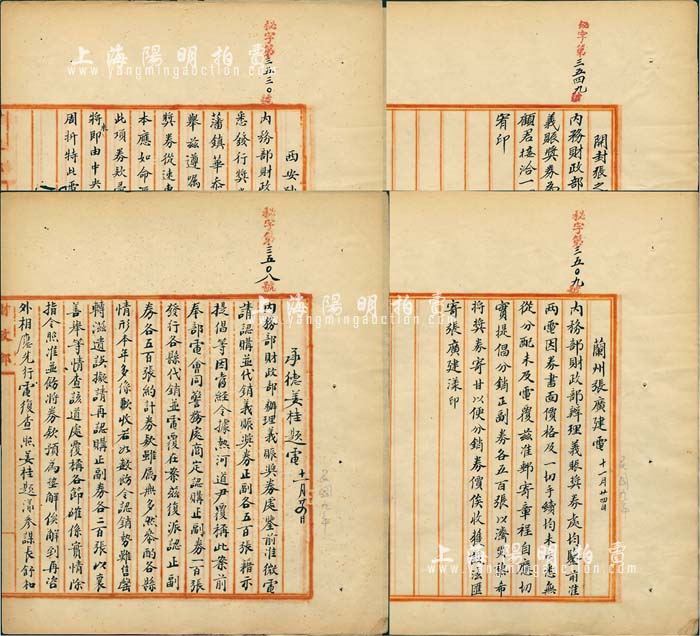 秘字第三五三〇號
西安
內務部財政部
悉發行獎
藩鎮華
舉茲遵囑
獎券從速
本應如命
此項券款
將即由中央
周折特此電
秘字第三五四九號
開封張之
內務部財政部
義賑獎券
顧君接洽一
宥印
秘字第三五〇八號
承德姜桂題電 十一月廿四日
內務部財政部辦理義賑獎券處鑒前准微電
請認購並代銷義賑獎券正副券各五百張藉示
提倡等因當經令據熱河道尹覆稱此案前
奉部電會同警務處商定認購正副券一百張
發行各縣代銷並電覆在案茲復派認正副
券各五百張約計券款雖屬無多然察酌各縣
情形本年多係歉收若如數飭令認銷勢難售罄
轉滋遺誤擬請再認購正副券各二百張以襄
善舉等情查該道處覆稱各節確係實情除
指令照准並飭將券款預為籌解俟解到再咨
外相應先行電復查照姜桂題漾參謀長舒和
財政部
秘字第三五〇九號
蘭州張廣建電 十一月廿四日
內務部財政部辦理義賑獎券處均鑒前准
兩電因券書面價格及一切手續均未詳悉無
從分配未及電覆茲准郵寄章程自應切
實提倡分銷正副券各五百張以濟
將獎券寄甘以便分銷券價俟收獲
寄張廣建漾印
民國九年
民國九年
上海陽明拍賣
www.yangmingauction.com
上海陽明拍賣
www.yangmingauction.com
上海陽明拍賣
www.yangmingauction.com
上海陽明拍賣
www.yangmingauction.com